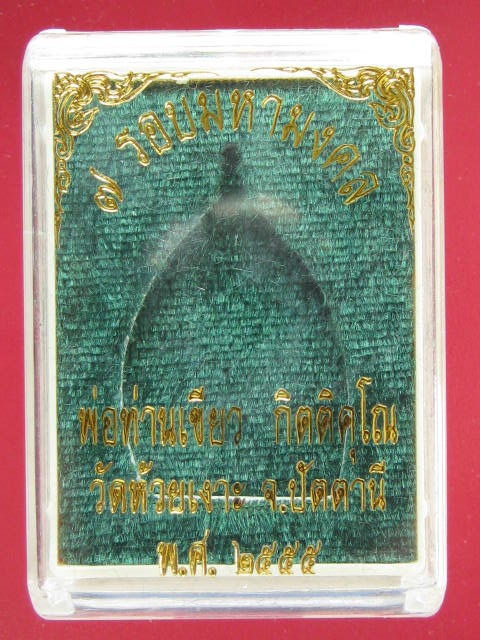 ๗ รอบมหามงคล
พ่อท่านเขียว กิตติคุโณ
วัดห้วยเงาะ จ.ปัตตานี
พ.ศ. ๒๕๕๕